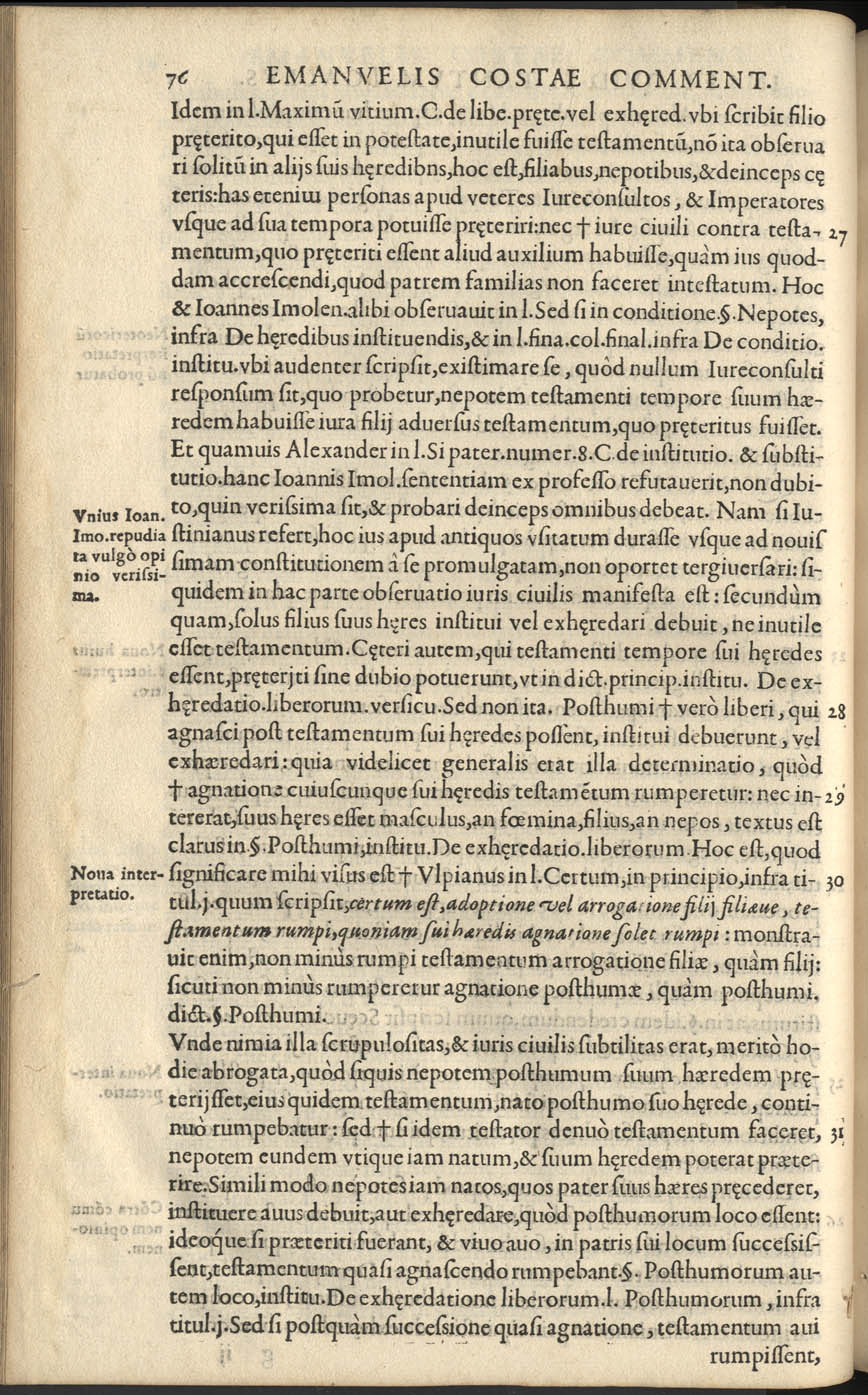 76 EMANVELIS COSTAE COMMENT.
Idem in l.Maximū vitium.C.de libe.pręte.vel exhęred.vbi ſcribit filio
pręterito,qui eſſet in poteſtate,inutile fuiſſe teſtamentū,nō ita obſerua
ri ſolitū in alijs ſuis hęredibns,hoc eſt,filiabus,nepotibus,&deinceps cę
teris:has etenim perſonas apud veteres Iureconſultos, & Imperatores
vſque ad ſua tempora potuiſſe pręteriri:nec † iure ciuili contra teſta- 27
mentum,quo pręteriti eſſent aliud auxilium habuiſſe,quàm ius quod-
dam accreſcendi,quod patrem familias non faceret inteſtatum. Hoc
& Ioannes Imolen.alibi obſeruauit in l.Sed ſi in conditione.§.Nepotes,
infra De hęredibus inſtituendis,& in l.fina.col.final.infra De conditio.
inſtitu.vbi audenter ſcripſit,exiſtimare ſe, quòd nullum Iureconſulti
reſponſum ſit,quo probetur,nepotem teſtamenti tempore ſuum hæ-
redem habuiſſe iura filij aduerſus teſtamentum,quo pręteritus fuiſſet.
Et quamuis Alexander in l.Si pater.numer.8.C.de inſtitutio. & ſubſti-
tutio.hanc Ioannis Imol.ſententiam ex profeſſo refutauerit,non dubi-
to,quin veriſsima ſit,& probari deinceps omnibus debeat. Nam ſi Iu-
Vnius Ioan.
Imo.repudia
ta vulgò opi
nio veriſsi-
ma.
ſtinianus refert,hoc ius apud antiquos vſitatum duraſſe vſque ad nouiſ
ſimam conſtitutionem â ſe promulgatam,non oportet tergiuerſari: ſi-
quidem in hac parte obſeruatio iuris ciuilis manifeſta eſt: ſecundùm
quam,ſolus filius ſuus hęres inſtitui vel exhęredari debuit, ne inutile
eſſet teſtamentum.Cęteri autem,qui teſtamenti tempore ſui hęredes
eſſent,pręterjti ſine dubio potuerunt,vt in dict.princip.inſtitu. De ex-
hęredatio.liberorum.verſicu.Sed non ita. Poſthumi † verò liberi, qui 28
agnaſci poſt teſtamentum ſui hęredes poſſent, inſtitui debuerunt, vel
exhæredari: quia videlicet generalis erat illa determinatio, quòd
† agnatione cuiuſcunque ſui hęredis teſtamētum rumperetur: nec in- 29
tererat,ſuus hęres eſſet maſculus,an fœmina,filius,an nepos, textus eſt
clarus in.§.Poſthumi,inſtitu.De exhęredatio.liberorum. Hoc eſt,quod
Noua inter-
pretatio.
ſignificare mihi viſus eſt † Vlpianus in l.Certum,in principio,infra ti- 30
tul.j.quum ſcripſit,certum eſt,adoptione vel arrogatione filij filiæue, te-
ſtamentum rumpi,quoniam ſui hæredis agnatione ſolet rumpi: monſtra-
uit enim,non minùs rumpi teſtamentum arrogatione filiæ, quàm filij:
ſicuti non minùs rumperetur agnatione poſthumæ, quàm poſthumi.
dict.§.Poſthumi.
Vnde nimia illa ſcrupuloſitas,& iuris ciuilis ſubtilitas erat, meritò ho-
die abrogata,quòd ſiquis nepotem poſthumum ſuum hæredem prę-
terijſſet,eius quidem teſtamentum,nato poſthumo ſuo hęrede, conti-
nuò rumpebatur: ſed † ſi idem teſtator denuò teſtamentum faceret, 31
nepotem eundem vtique iam natum,& ſuum hęredem poterat præte-
rire.Simili modo nepotes iam natos,quos pater ſuus hæres pręcederet,
inſtituere auus debuit,aut exhęredare,quòd poſthumorum loco eſſent:
ideoque ſi præteriti fuerant, & viuo auo, in patris ſui locum ſucceſsiſ-
ſent,teſtamentum quaſi agnaſcendo rumpebant.§. Poſthumorum au-
tem loco,inſtitu.De exhęredatione liberorum.l. Poſthumorum, infra
titul.j.Sed ſi poſtquàm ſucceſsione quaſi agnatione, teſtamentum aui
rumpiſſent,